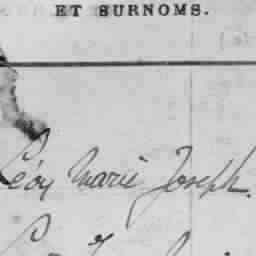 ET SURNOMS.
Léon Marie Joseph.